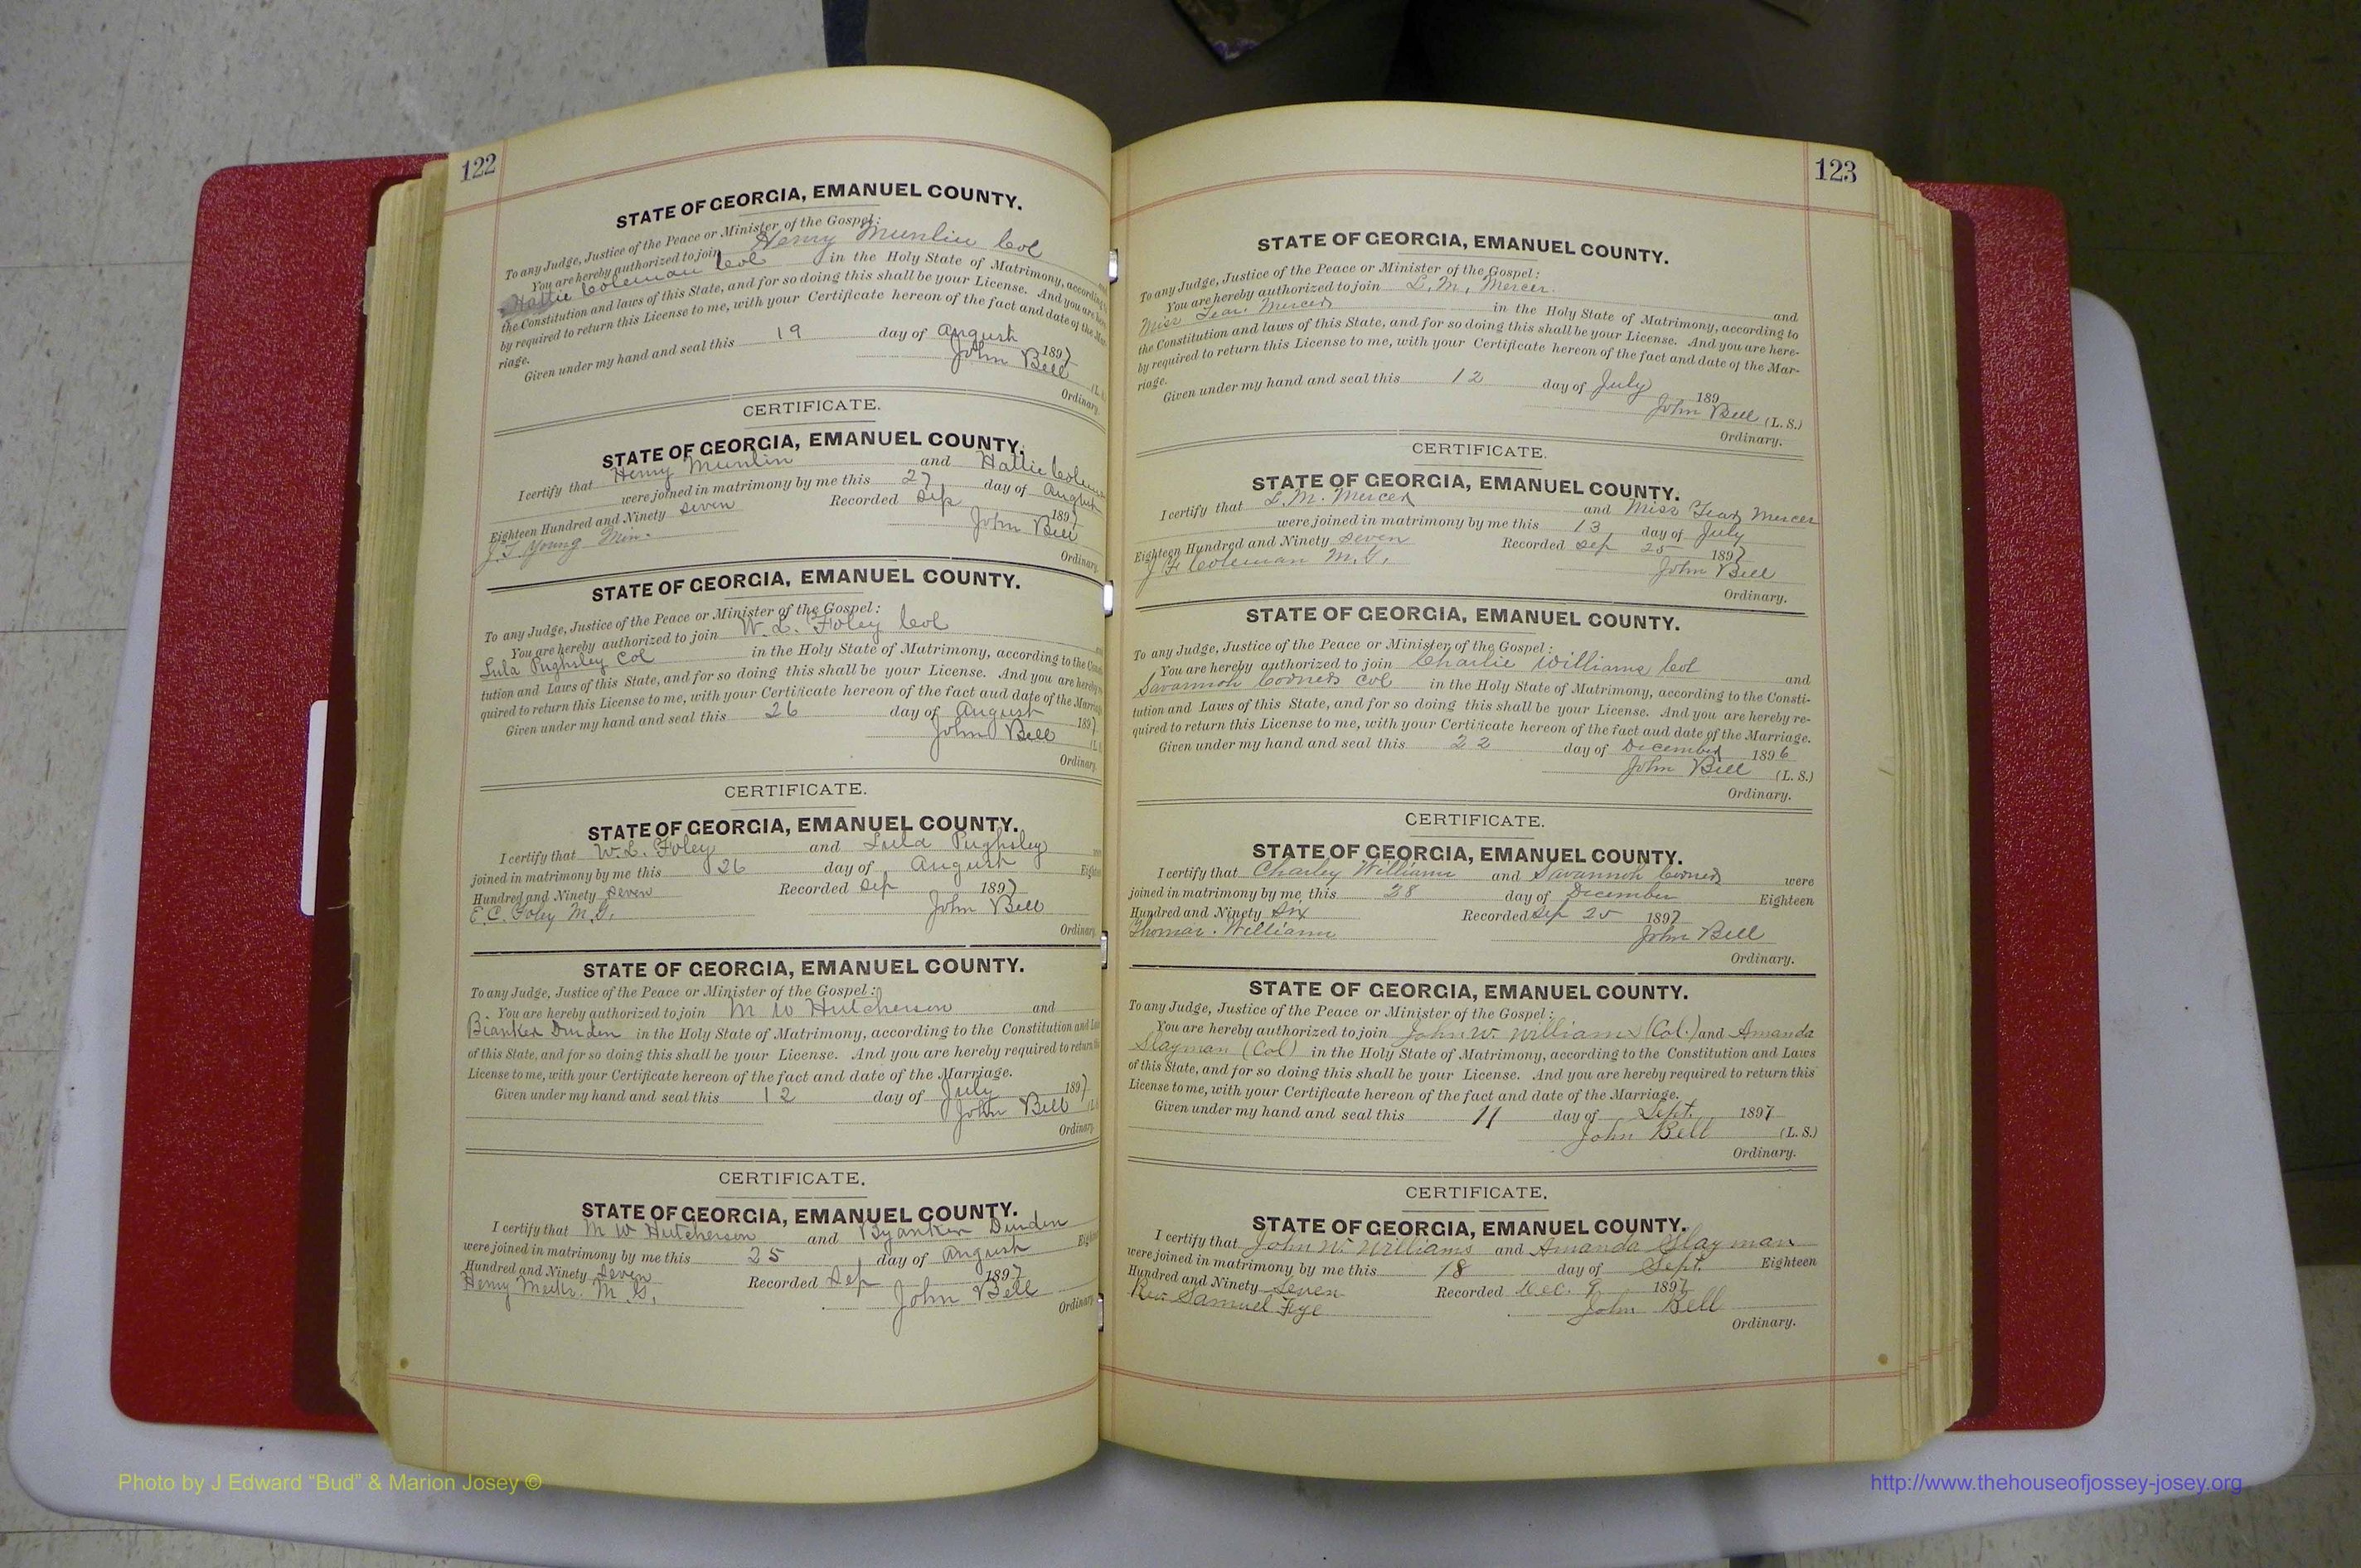 122
STATE OF GEORGIA, EMANUEL COUNTY.
To any Judge, Justice of the Peace or Minister of the Gospel:
You are hereby authorized to join Henry Munlin Col
Hattie Coleman Col in the Holy State of Matrimony, according
the Constitution and laws of this State, and for so doing this shall be your License. And you are here-
by required to return this License to me, with your Certificate hereon of the fact and date of the Mar-
riage.
Given under my hand and seal this 19 day of August 1897
John Bell (L.
Ordinary.
CERTIFICATE.
STATE OF GEORGIA, EMANUEL COUNTY.
I certify that Henry Munlin and Hattie Coleman
were joined in matrimony by me this 27 day of August
Eighteen Hundred and Ninety seven Recorded Sep 1897
J. T. Young Min. John Bell
Ordinary.
STATE OF GEORGIA, EMANUEL COUNTY.
To any Judge, Justice of the Peace or Minister of the Gospel:
You are hereby authorized to join W. L. Foley Col
Lula Pughsley Col in the Holy State of Matrimony, according to the Consti-
tution and Laws of this State, and for so doing this shall be your License. And you are hereby re-
quired to return this License to me, with your Certificate hereon of the fact aud date of the Marriage.
Given under my hand and seal this 26 day of August 1897
John Bell (L.
Ordinary.
CERTIFICATE.
STATE OF GEORGIA, EMANUEL COUNTY.
I certify that W. L. Foley and Lula Pughsley
joined in matrimony by me this 26 day of August Eighteen
Hundred and Ninety seven Recorded Sep 1897
E. C. Foley M. G. John Bell
Ordinary.
STATE OF GEORGIA, EMANUEL COUNTY.
To any Judge, Justice of the Peace or Minister of the Gospel:
You are hereby authorized to join M W Hutcherson and
Bianker Durden in the Holy State of Matrimony, according to the Constitution and Laws
of this State, and for so doing this shall be your License. And you are hereby required to return this
License to me, with your Certificate hereon of the fact and date of the Marriage.
Given under my hand and seal this 12 day of July 1897
John Bell (L.
Ordinary.
CERTIFICATE.
STATE OF GEORGIA, EMANUEL COUNTY.
I certify that M W Hutcherson and Byanker Durden
were joined in matrimony by me this 25 day of August Eighteen
Hundred and Ninety seven Recorded Sep 1897
Henry Meeks. M. G. John Bell
Ordinary.
123
STATE OF GEORGIA, EMANUEL COUNTY.
To any Judge, Justice of the Peace or Minister of the Gospel:
You are hereby authorized to join L. M. Mercer. and
Miss Mercer in the Holy State of Matrimony, according to
the Constitution and laws of this State, and for so doing this shall be your License. And you are here-
by required to return this License to me, with your Certificate hereon of the fact and date of the Mar-
riage.
Given under my hand and seal this 12 day of July 189
John Bell (L. S.)
Ordinary.
CERTIFICATE.
STATE OF GEORGIA, EMANUEL COUNTY.
I certify that L. M. Mercer and Miss Mercer
were joined in matrimony by me this 13 day of July
Eighteen Hundred and Ninety seven Recorded Sep 25 1897
J F Coleman M. G. John Bell
Ordinary.
STATE OF GEORGIA, EMANUEL COUNTY.
To any Judge, Justice of the Peace or Minister of the Gospel:
You are hereby authorized to join Charlie Williams Col and
Savannoh Corners Col in the Holy State of Matrimony, according to the Consti-
tution and Laws of this State, and for so doing this shall be your License. And you are hereby re-
quired to return this License to me, with your Certificate hereon of the fact aud date of the Marriage.
Given under my hand and seal this 22 day of December 1896
John Bell (L. S.)
Ordinary.
CERTIFICATE.
STATE OF GEORGIA, EMANUEL COUNTY.
I certify that Charley Williams and Savannoh Corners were
joined in matrimony by me, this 28 day of December Eighteen
Hundred and Ninety Six Recorded Sep 25 1897
Thomas. Williams John Bell
Ordinary.
STATE OF GEORGIA, EMANUEL COUNTY.
To any Judge, Justice of the Peace or Minister of the Gospel:
You are hereby authorized to join John W. Williams (Col.) and Amanda
Slayman (Col) in the Holy State of Matrimony, according to the Constitution and Laws
of this State, and for so doing this shall be your License. And you are hereby required to return this
License to me, with your Certificate hereon of the fact and date of the Marriage.
Given under my hand and seal this 11 day of Sept. 1897
John Bell (L. S.)
Ordinary.
CERTIFICATE.
STATE OF GEORGIA, EMANUEL COUNTY.
I certify that John W. Williams and Amanda Slayman
were joined in matrimony by me this 18 day of Sept. Eighteen
Hundred and Ninety Seven Recorded Dec. 9 1897
Rev Samuel Frye John Bell
Ordinary.
Photo by J Edward “Bud” & Marion Josey ©
http://www.thehouseofjossey-josey.org